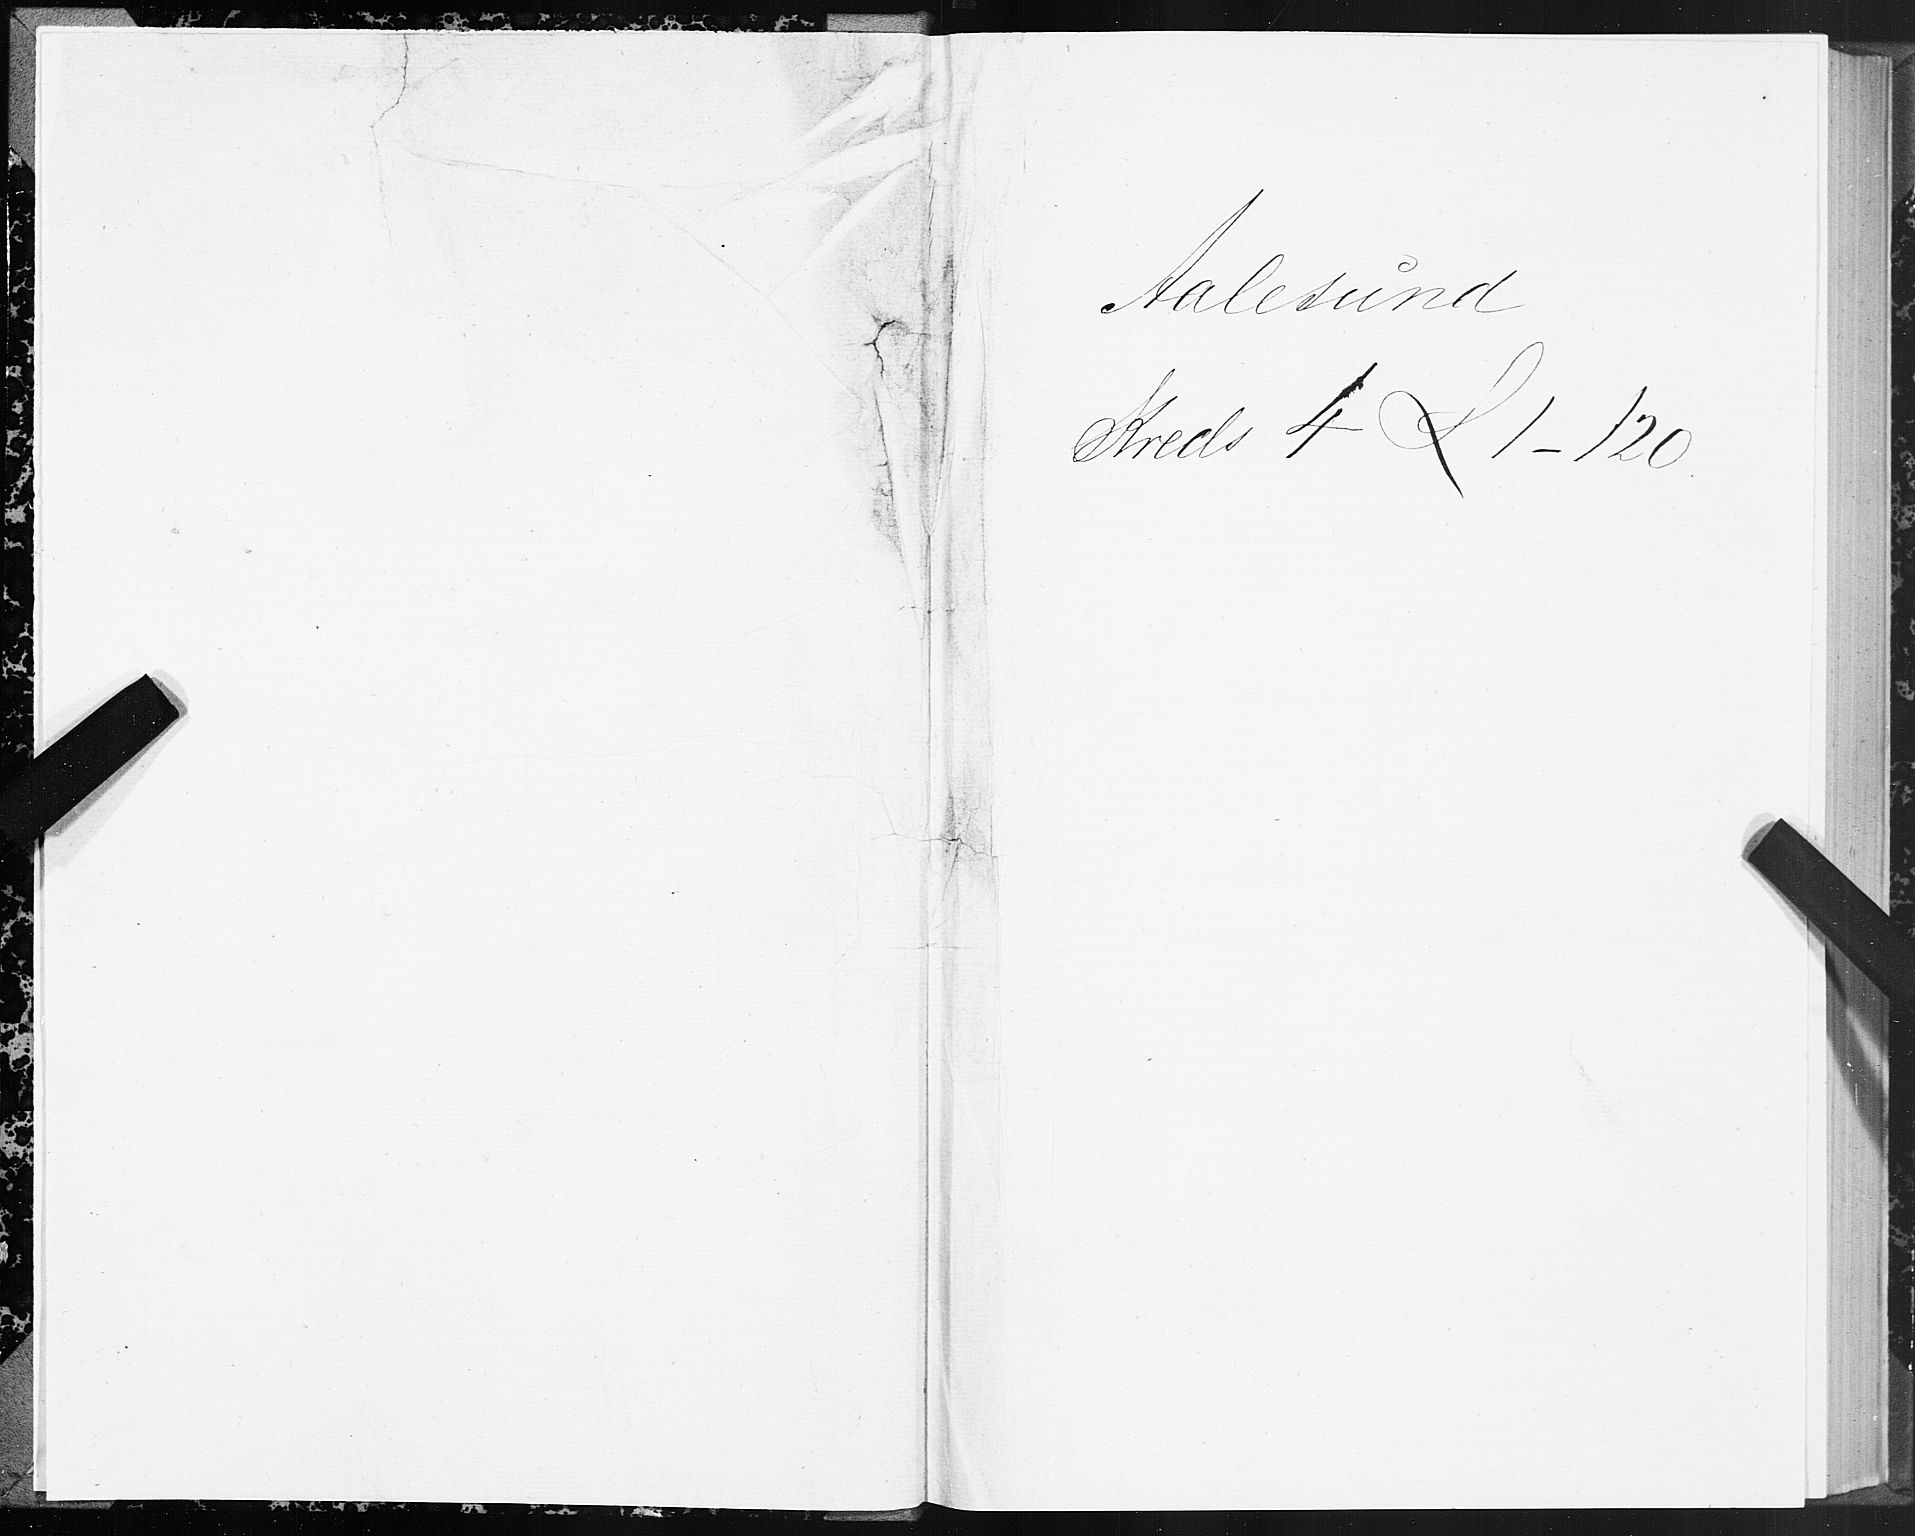 Aalesund
Kreds 4 L 1 - 120.